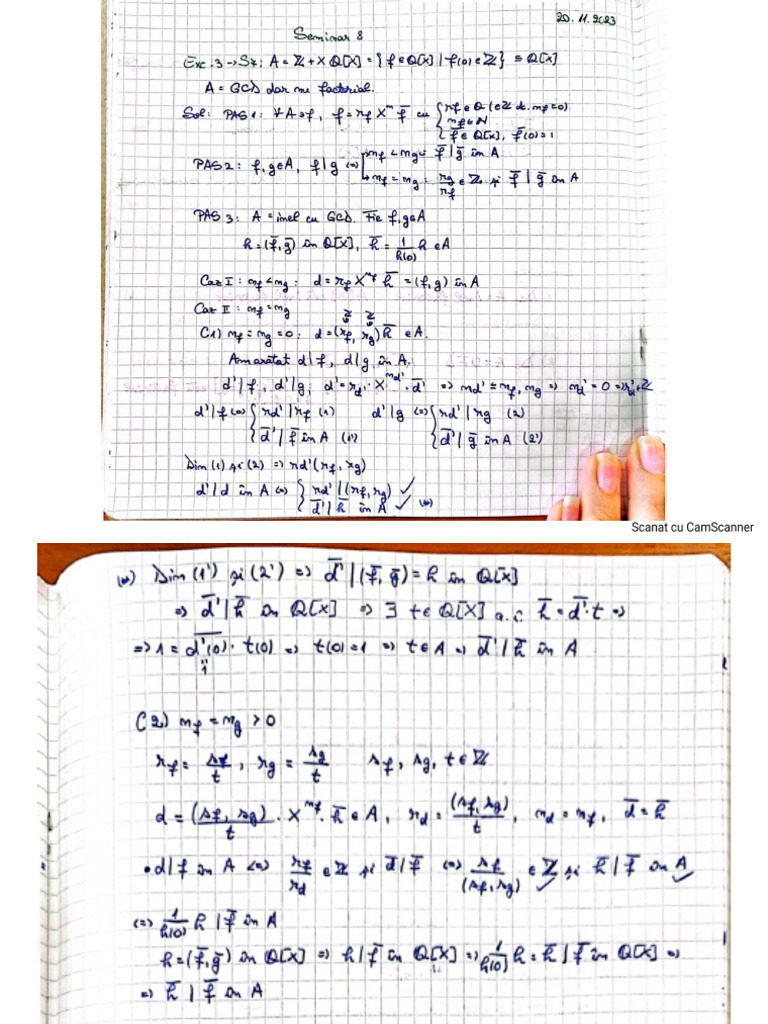 20.11.2023
Seminar 8
Exc. 3 → S7: A = ℤ + XQ[X] = {f ∈ Q[X] | f(0) ∈ ℤ} ⊆ Q[X]
A = GCD dar nu factorial.
Sol: PAS 1: ∀ A ∋ f, f = r_f X^{n_f} f̄ cu { r_f ∈ Q (∈ ℤ dc. n_f = 0)
n_f ∈ ℕ
f̄ ∈ Q[X], f̄(0) = 1
PAS 2: f, g ∈ A, f | g ⇔ n_f < n_g: f̄ | ḡ în A
n_f = n_g: r_g/r_f ∈ ℤ și f̄ | ḡ în A
PAS 3: A = inel cu GCD. Fie f, g ∈ A
h = (f̄, ḡ) în Q[X], h̄ = 1/h(0) h ∈ A
Caz I: n_f < n_g: d = r_f X^{n_f} h̄ = (f, g) în A
Caz II: n_f = n_g
ℤ ℤ
C1) n_f = n_g = 0: d = (r_f, r_g) h̄ ∈ A.
Am arătat d | f, d | g în A.
d' | f, d' | g; d' = r_d' · X^{n_d'} · d̄' ⇒ n_d' ≤ n_f, n_g ⇒ n_d' = 0 ⇒ r_d' ∈ ℤ
d' | f ⇔ { r_d' | r_f (1) d' | g ⇔ { r_d' | r_g (2)
d̄' | f̄ în A (1') d̄' | ḡ în A (2')
Din (1) și (2) ⇒ r_d' | (r_f, r_g)
d' | d în A ⇔ { r_d' | (r_f, r_g) ✓
d̄' | h̄ în A ✓ (*)
Scanat cu CamScanner
(*) Din (1') și (2') ⇒ d̄' | (f̄, ḡ) = h în Q[X]
⇒ d̄' | h̄ în Q[X] ⇒ ∃ t ∈ Q[X] a.î. h̄ = d̄' · t ⇒
⇒ 1 = d̄'(0) · t(0) ⇒ t(0) = 1 ⇒ t ∈ A ⇒ d̄' | h̄ în A
1
C2) n_f = n_g > 0
r_f = s_f/t, r_g = s_g/t s_f, s_g, t ∈ ℤ
d = (s_f, s_g)/t · X^{n_f} · h̄ ∈ A, r_d = (s_f, s_g)/t, n_d = n_f, d̄ = h̄
• d | f în A ⇔ r_f/r_d ∈ ℤ și d̄ | f̄ ⇔ s_f/(s_f, s_g) ∈ ℤ ✓ și h̄ | f̄ în A ✓
⇔ 1/h(0) h | f̄ în A
h = (f̄, ḡ) în Q[X] ⇒ h | f̄ în Q[X] ⇒ 1/h(0) h = h̄ | f̄ în Q[X] ⇒
⇒ h̄ | f̄ în A